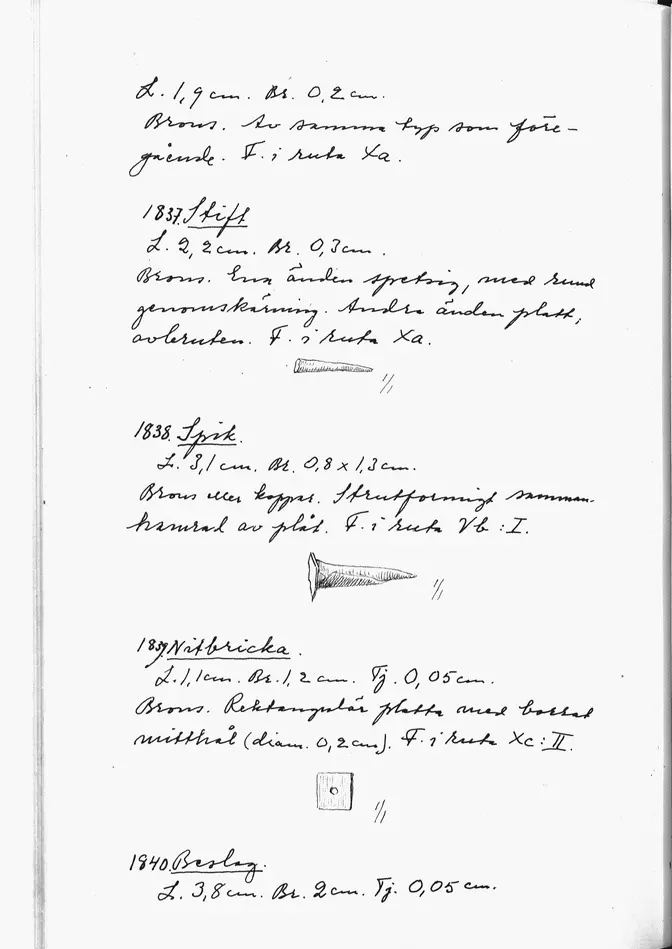 L. 1,9 cm. Br. 0,2 cm.
Brons. Av samma typ som före-
gående. F. i ruta Xa.
1837. Stift
L. 2,2 cm. Br. 0,3 cm.
Brons. Ena änden spetsig, med rund
genomskärning. Andra änden platt,
avbruten. F. i ruta Xa.
1/1
1838. Spik.
L. 3,1 cm. Br. 0,8 x 1,3 cm.
Brons eller koppar. Strutformigt samman-
hamrad av plåt. F. i ruta Vb : I.
1/1
1839. Nitbricka.
L. 1,1 cm. Br. 1,2 cm. Tj. 0,05 cm.
Brons. Rektangulär platta med borrat
mitthål (diam. 0,2 cm). F. i ruta Xc : II.
1/1
1840. Beslag.
L. 3,8 cm. Br. 2 cm. Tj. 0,05 cm.